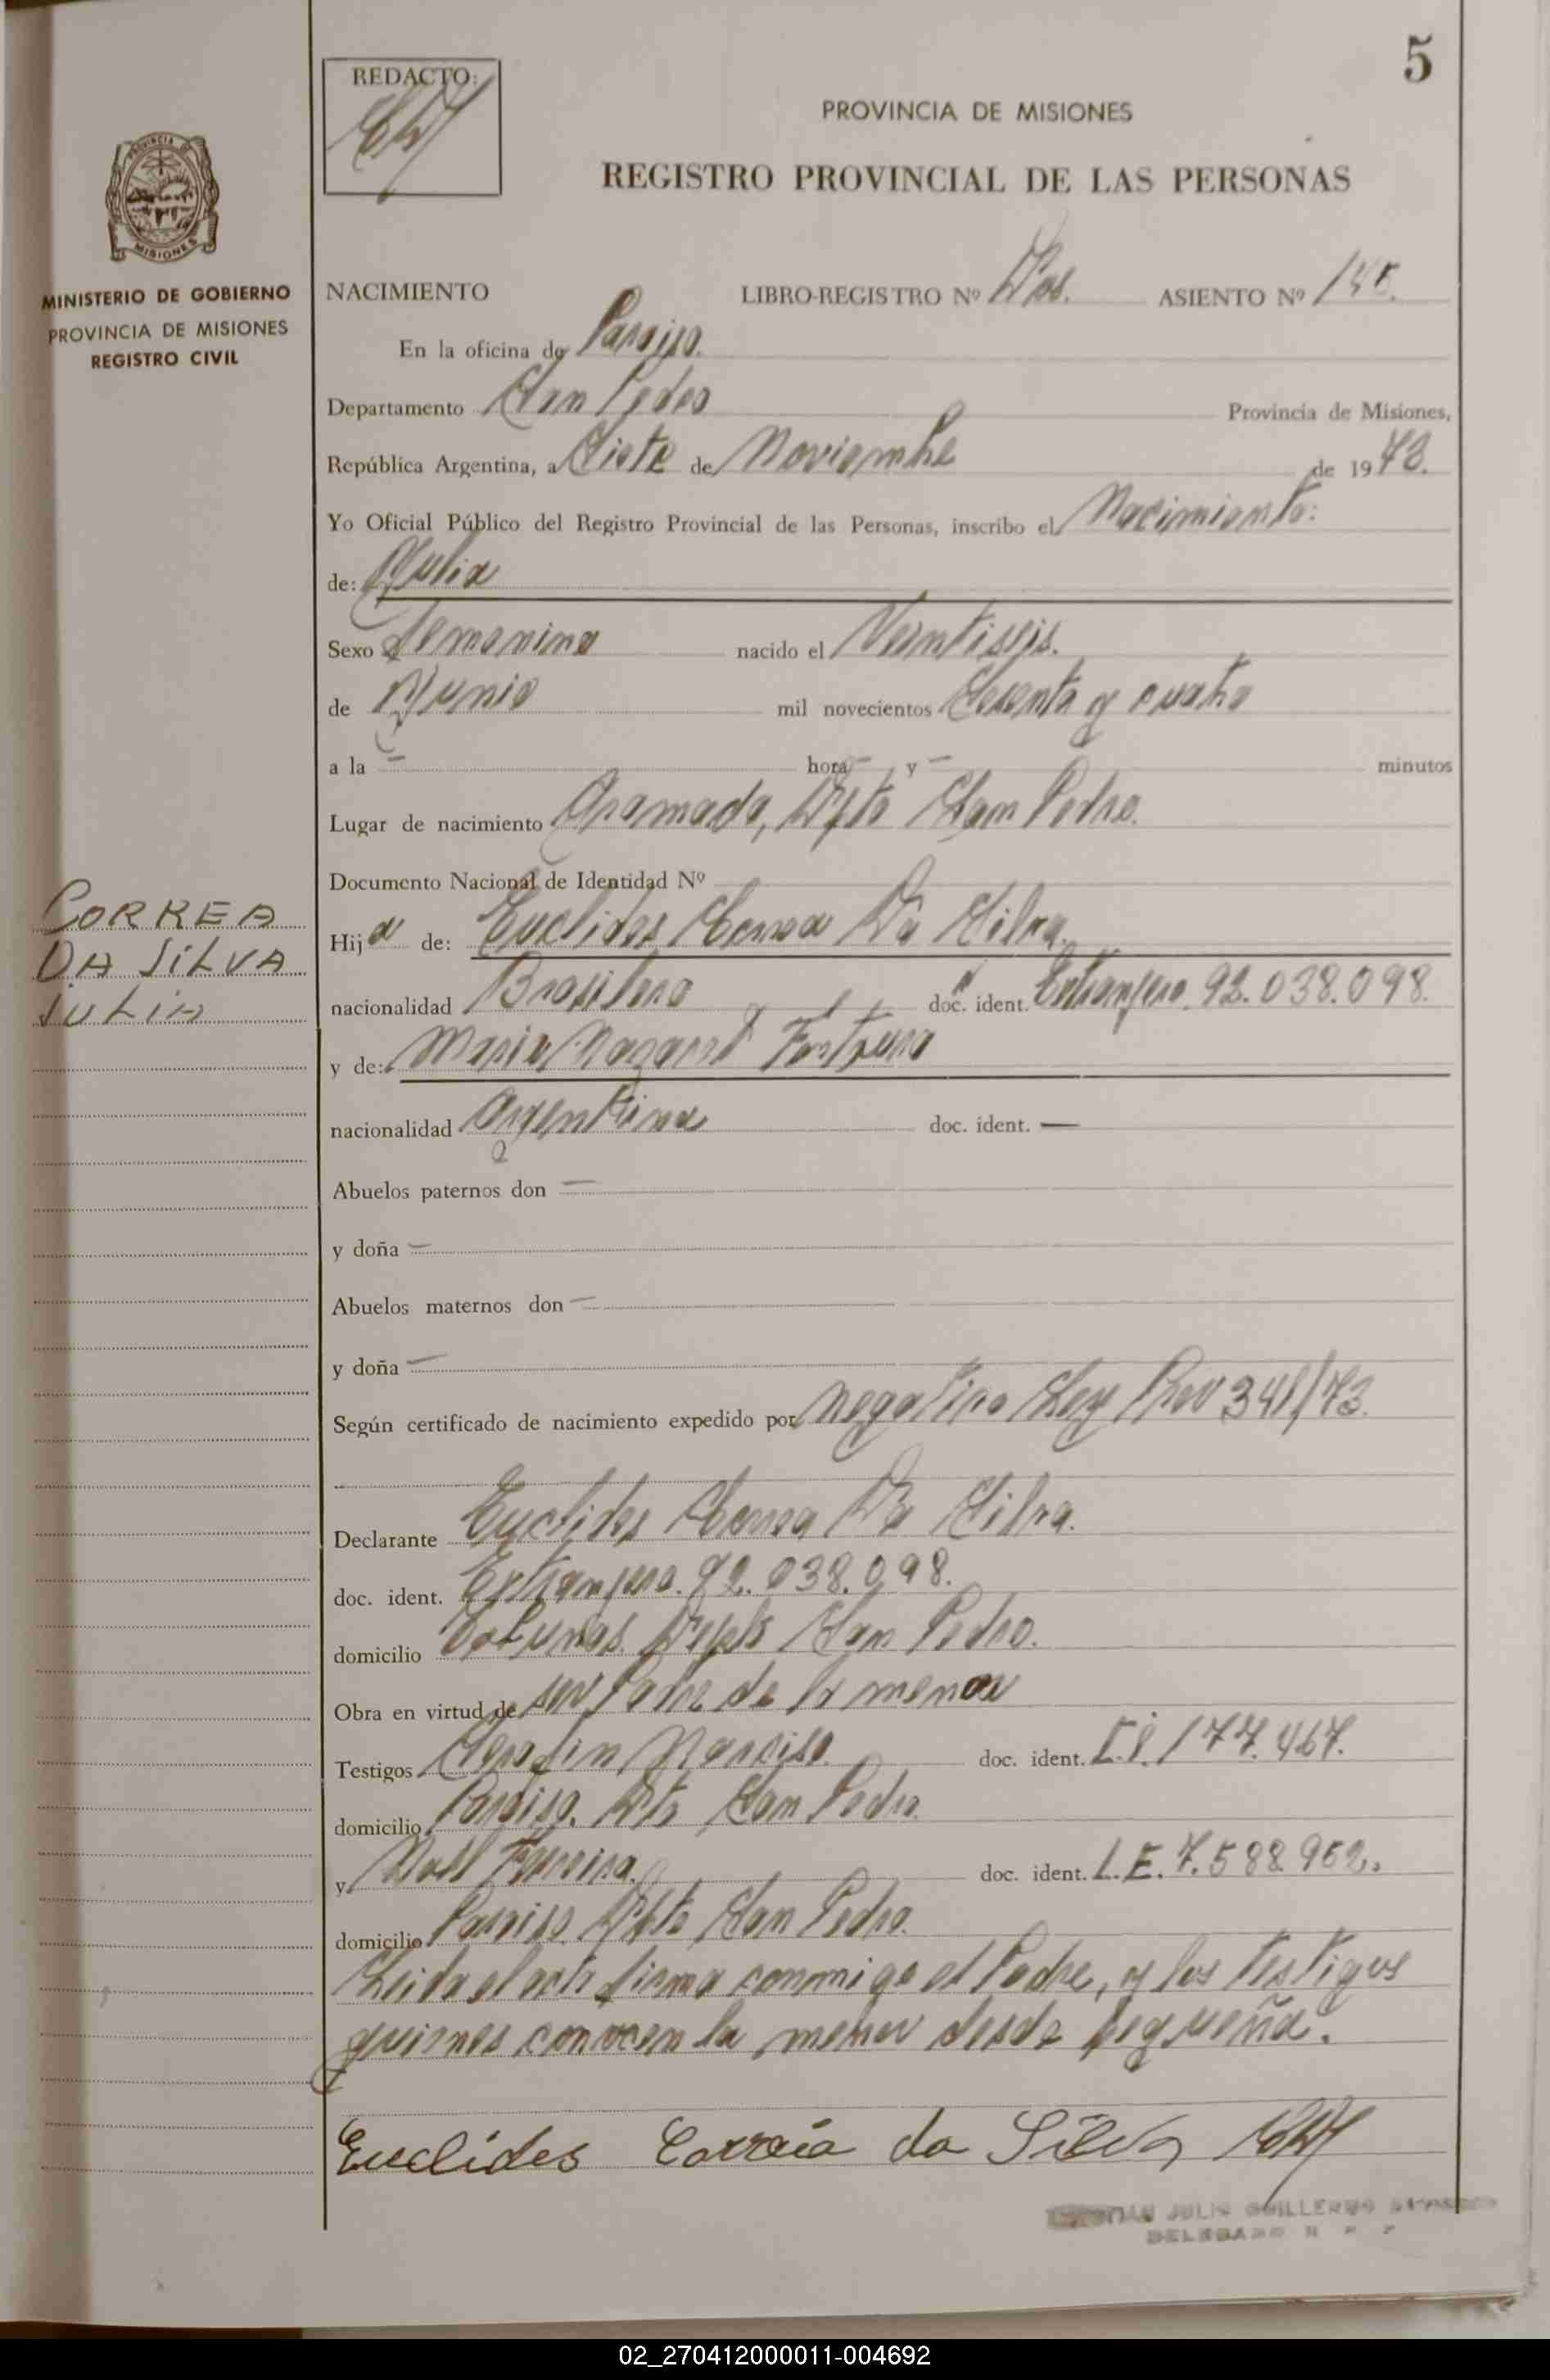 5
REDACTO:
PROVINCIA DE MISIONES
REGISTRO PROVINCIAL DE LAS PERSONAS
PROVINCIA DE
MISIONES
MINISTERIO DE GOBIERNO
PROVINCIA DE MISIONES
REGISTRO CIVIL
NACIMIENTO LIBRO-REGISTRO Nº Dos. ASIENTO Nº
En la oficina de Paraiso.
Departamento San Pedro Provincia de Misiones,
República Argentina, a Siete de Noviembre de 1973.
Yo Oficial Público del Registro Provincial de las Personas, inscribo el Nacimiento:
de: Julia
Sexo Femenino nacido el Veintiseis.
de Junio mil novecientos Sesenta y cuatro
a la — hora — y — minutos
Lugar de nacimiento Gramado, Dpto San Pedro.
Documento Nacional de Identidad Nº
CORREA
DA SILVA
JULIA
Hija de: Euclides Correa Da Silva
nacionalidad Brasilero doc. ident. Extranjero 92.038.098.
y de: Maria Nazaret
nacionalidad Argentina doc. ident. —
Abuelos paternos don —
y doña —
Abuelos maternos don —
y doña —
Según certificado de nacimiento expedido por negativo Ley Prov 341/73.
Declarante Euclides Correa Da Silva.
doc. ident. Extranjero. 92.038.098.
domicilio Tobunas. Depto San Pedro.
Obra en virtud de ser Padre de la menor
Testigos Serafin Narciso. doc. ident. 177.467.
domicilio Paraiso. Dto San Pedro
y Ferreira. doc. ident. L.E. 7.588.952.
domicilio Paraiso Dpto San Pedro.
Leida el acta firma conmigo el Padre, y los testigos
quienes conocen la menor desde pequeña.
Euclídes Corrêia da Silva
JULIO GUILLERMO
DELEGADO R P P
02_270412000011-004692